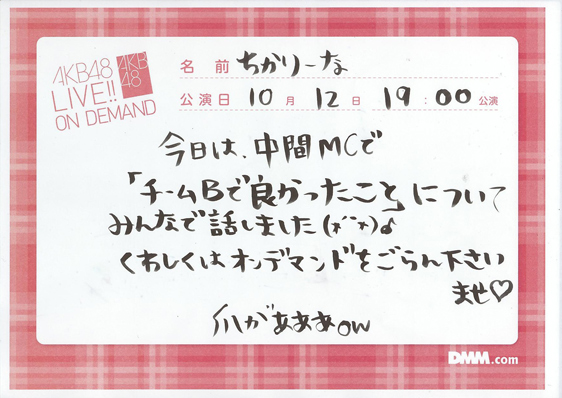 AKB48
LIVE!!
ON DEMAND
AKB
48
名 前 ちかりーな
公演日 10 月 12 日 19 : 00 公演
今日は、中間MCで
「チームBで良かったこと」について
みんなで話しました
くわしくはオンデマンドをごらん下さい
ませ♡
爪がぁぁぁow
DMM.com